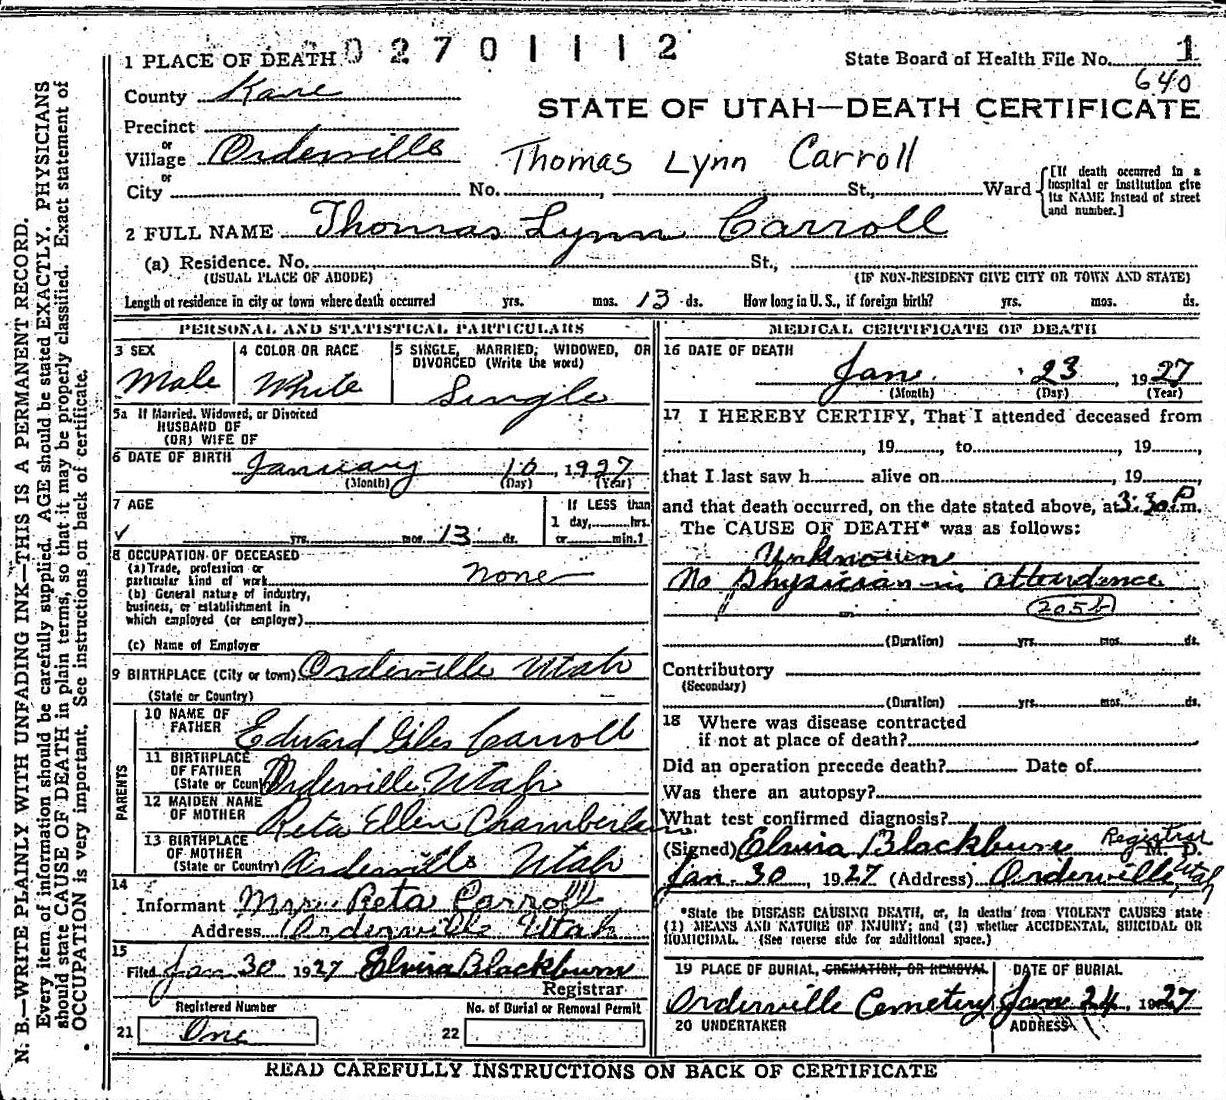 0 2 7 0 1 1 1 2
1 PLACE OF DEATH
State Board of Health File No. 1
640
County Kane
STATE OF UTAH—DEATH CERTIFICATE
Precinct
or
Village Orderville
Thomas Lynn Carroll
or
City No. St., Ward
[If death occurred in a hospital or institution give its NAME instead of street and number.]
2 FULL NAME Thomas Lynn Carroll
(a) Residence. No. St.,
(USUAL PLACE OF ABODE) (IF NON-RESIDENT GIVE CITY OR TOWN AND STATE)
Length of residence in city or town where death occurred yrs. mos. 13 ds. How long in U. S., if foreign birth? yrs. mos. ds.
PERSONAL AND STATISTICAL PARTICULARS
3 SEX
Male
4 COLOR OR RACE
White
5 SINGLE, MARRIED, WIDOWED, OR
DIVORCED (Write the word)
Single
5a If Married, Widowed, or Divorced
HUSBAND OF
(OR) WIFE OF
6 DATE OF BIRTH January 10, 1927
(Month) (Day) (Year)
7 AGE
If LESS than
1 day, hrs.
yrs. mos. 13 ds. or min.?
8 OCCUPATION OF DECEASED
(a) Trade, profession or
particular kind of work none
(b) General nature of industry,
business, or establishment in
which employed (or employer)
(c) Name of Employer
9 BIRTHPLACE (City or town) Orderville Utah
(State or Country)
PARENTS
10 NAME OF
FATHER Edward Giles Carroll
11 BIRTHPLACE
OF FATHER
(State or Country) Orderville, Utah
12 MAIDEN NAME
OF MOTHER Reta Ellen Chamberlain
13 BIRTHPLACE
OF MOTHER
(State or Country) Orderville Utah
14
Informant Mrs Reta Carroll
Address Orderville Utah
15
Filed Jan 30 1927 Elvira Blackburn
Registrar
Registered Number
21 One
No. of Burial or Removal Permit
22
MEDICAL CERTIFICATE OF DEATH
16 DATE OF DEATH
Jan. 23, 1927
(Month) (Day) (Year)
17 I HEREBY CERTIFY, That I attended deceased from
, 19 , to , 19 ,
that I last saw h alive on , 19 ,
and that death occurred, on the date stated above, at 3:30 P.m.
The CAUSE OF DEATH* was as follows:
Unknown
No physician in attendence
205b
(Duration) yrs. mos. ds.
Contributory
(Secondary)
(Duration) yrs. mos. ds.
18 Where was disease contracted
if not at place of death?
Did an operation precede death? Date of
Was there an autopsy?
What test confirmed diagnosis?
(Signed) Elvira Blackburn Registrar M. D.
Jan. 30, 1927 (Address) Orderville Utah
*State the DISEASE CAUSING DEATH, or, in deaths from VIOLENT CAUSES state
(1) MEANS AND NATURE OF INJURY; and (2) whether ACCIDENTAL, SUICIDAL OR
HOMICIDAL. (See reverse side for additional space.)
19 PLACE OF BURIAL, CREMATION, OR REMOVAL
Orderville Cemetery
DATE OF BURIAL
Jan 24, 1927
20 UNDERTAKER
ADDRESS
READ CAREFULLY INSTRUCTIONS ON BACK OF CERTIFICATE
N. B.—WRITE PLAINLY WITH UNFADING INK—THIS IS A PERMANENT RECORD.
Every item of information should be carefully supplied. AGE should be stated EXACTLY. PHYSICIANS
should state CAUSE OF DEATH in plain terms, so that it may be properly classified. Exact statement of
OCCUPATION is very important. See instructions on back of certificate.